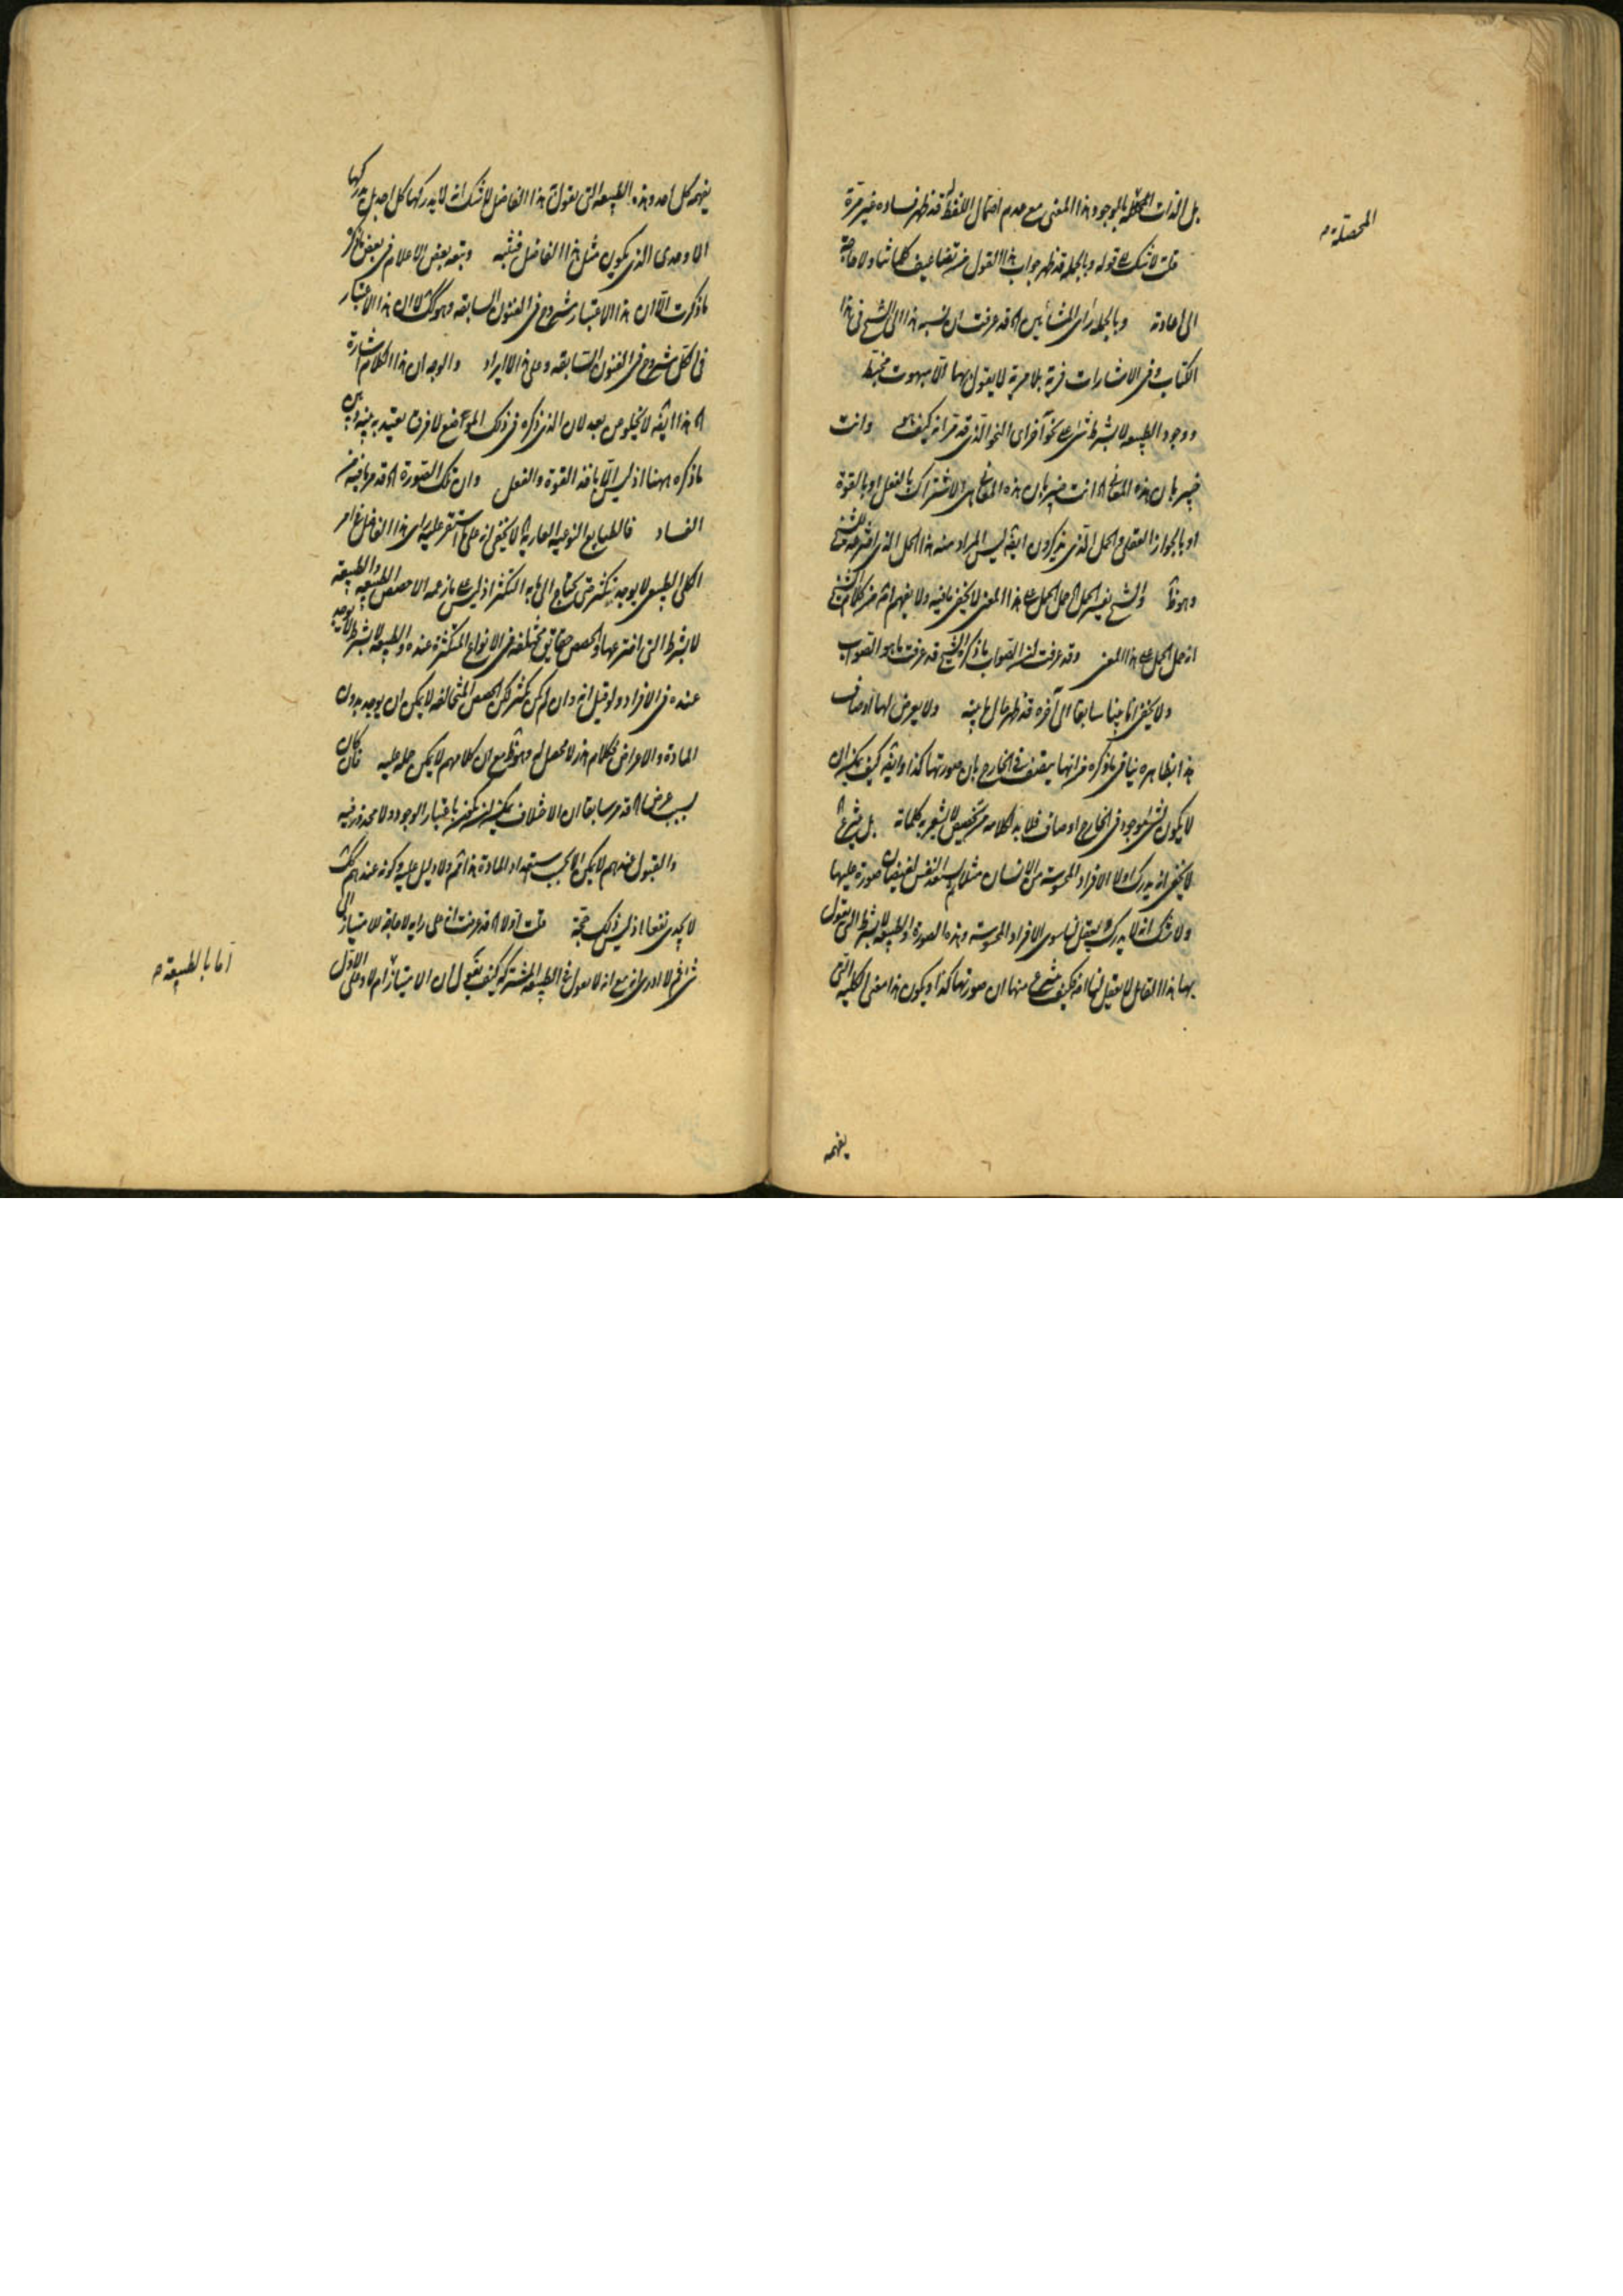 بل الذات بالموجود هذا المعنى مع عدم احتمال اللفظ له قد ظهر فساده غير مرة
المحصلة
قلت لا شك قوله وبالجملة قد ظهر جواب هذا القول من تضاعيف كلماتنا ولا حاجة
الى اعادته وبالجملة رأى المشائين اه قد عرفت ان نسبة هذا الى الشيخ فى هذا
الكتاب وفى الاشارات فرية بلا مرية لا يقول بها الا مبهوت
ووجود الطبيعة لا بشرط شىء على نحو آخر اى النحو الذى قد مر انه كيف هو وانت
خبير بان هذه المعانى اه انت خبير بان هذه المعانى هى الاشتراك بالفعل او بالقوة
او بالجواز العقلى والحمل الذى يذكرون ايضه ليس المراد منه هذا الحمل الذى
وهو ظ والشيخ يفسر الحمل اه حمل الحمل على هذا المعنى لا يخفى ما فيه ولا يفهم انه من كلام الشيخ
انه حمل الحمل على هذا المعنى وقد عرفت ان الصواب ما ذكره الشيخ قد عرفت ما هو الصواب
ولا يخفى انا بينا سابقا الى آخره قد ظهر حال ما بينه ولا يعرض لها اوصاف
هذا بظاهره ينافى ما ذكره من انها يتصف فى الخارج بان صورتها كذا وايضه كيف يمكن ان
لا يكون لشىء موجود فى الخارج اوصاف فلا بد لكلامه من تخصيص لا يشعر به كلماته بل ينتزع اه
لا يخفى انه يدرك اولا الافراد المحسوسة من الانسان مثلا ثم يستعد النفس لفيضان صورة عليها
ولا شك انه لا يدرك ولا يعقل ما سوى الافراد المحسوسة وهذه الصورة والطبيعة لا بشرط التى يقول
بها هذا القائل لا يعقل لها انه فكيف ينتزع منها ان صورتها كذا ويكون هذا معنى الكلية التى
يفهمه
يفهمه كل احد وهذه الطبيعة التى يقول بها هذا الفاضل لا شك انه لا يدركها كل احد بل يدركها
الاوحدى الذى يكون مثل هذا الفاضل فتنبه وتبعه بعض الاعلام فى بعض ما ذكر
ما ذكرت الا ان هذا الاعتبار مشروح فى الفنون السابقة وهو كك لا ان هذا الاعتبار
فى الكل مشروح فى الفنون السابقة وعلى هذا لا ايراد والوجه ان هذا الكلام اشارة
اه هذا ايضه لا يخلو من بعد لان الذى ذكره فى ذلك الموضع لا فرق يعتد به بينه وبين
ما ذكره ههنا اذ ليس الا باخذ القوة والفعل وان تلك الصورة اه قد مر ما فيه من
الفساد فالطبايع النوعية العارية اه لا يخفى انه على ما استقر عليه راى هذا الفاضل
الكلى الطبيعى لا يوجد بتكثر حتى يحتاج الى مابه التكثر اذ ليس على ما زعمه الا حصص الطبيعة والطبيعة
لا بشرط التى اخترعها والحصص حقايق مختلفة فى الانواع المتكثرة عنده والطبيعة لا بشرط لا يوجد
عنده فى الافراد ولو قيل انه وان لم يكن تكثر لكن الحصص المتخالفة لا يمكن ان يوجد بدون
المادة والاعراض فكلام اخر لا محصل له وهو ظ مع ان كلامهم لا يمكن حمله عليه فان كان
بسبب عرض اه قد مر سابقا ان الاختلاف يمكن ان يكون باعتبار الوجود ولا محذور فيه
والقبول عندهم لا يكون الا بحسب استعداد المادة هذا ثم ولا دليل عليه وكونه عندهم كك
لا يجدى نفعا اذ ليس ذلك حجة قلت اولا اه قد عرفت انه على رايه لا حاجة للامتياز الى
شىء آخر لا ادرى انه مع انه لا يقول بالطبيعة المشتركة كيف يقول ان الامتياز ام لا وعلى الاول
اما بالطبيعة